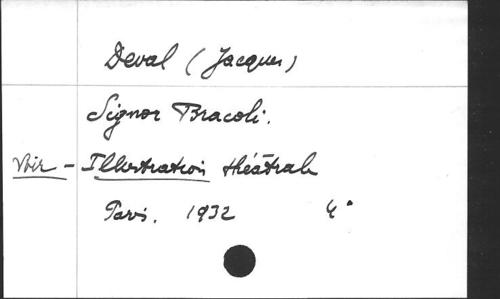 Deval (Jacques)
Signor Bracoli.
Voir - Illustration théâtrale
Paris. 1932 4°